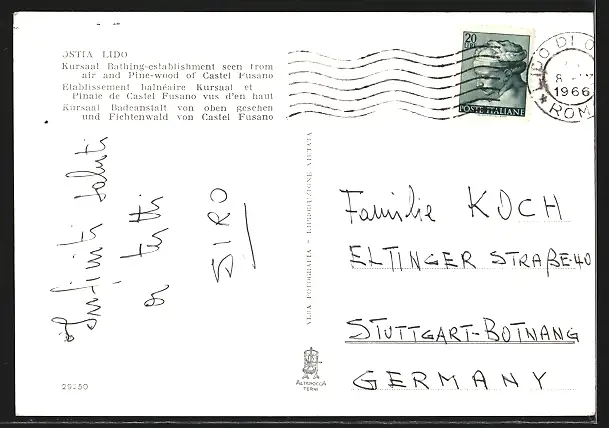 OSTIA LIDO
Kursaal Bathing-establishment seen from
air and Pine-wood of Castel Fusano
Etablissement balnéaire Kursaal et
Pinaie de Castel Fusano vus d'en haut
Kursaal Badeanstalt von oben gesehen
und Fichtenwald von Castel Fusano
20
POSTE ITALIANE
LIDO DI O
8
1966
ROM
Infiniti saluti
a tutti
SIRO
VERA FOTOGRAFIA - RIPRODUZIONE VIETATA
Familie KOCH
ELTINGER STRAßE 40
STUTTGART-BOTNANG
GERMANY
ALTEROCCA
TERNI
29250